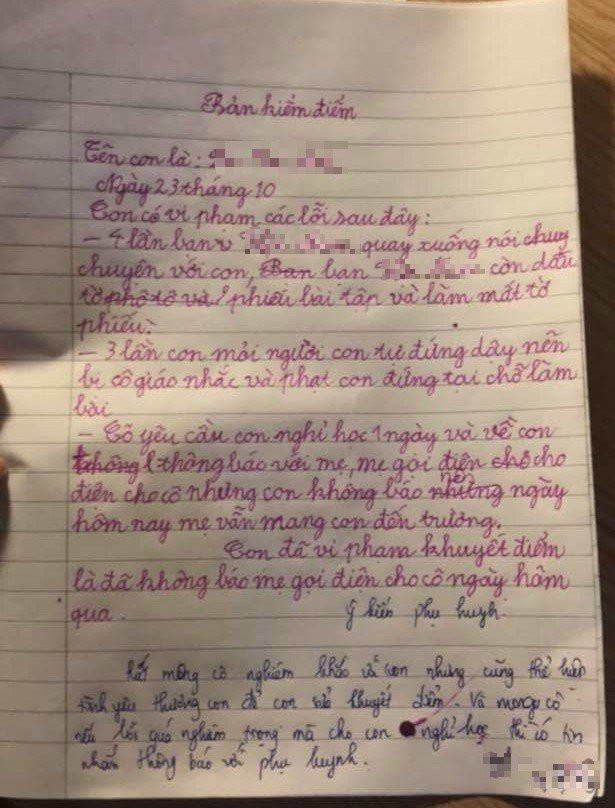 Bản kiểm điểm
Tên con là:
Ngày 23 tháng 10
Con có vi phạm các lỗi sau đây:
- 4 lần bạn quay xuống nói chuyện
chuyện với con, Bạn bạn còn dấu
tờ phô tô và 1 phiếu bài tập và làm mất tờ
phiếu.
- 3 lần con mỏi người con tự đứng dậy nên
bị cô giáo nhắc và phạt con đứng tại chỗ làm
bài
- Cô yêu cầu con nghỉ học 1 ngày và về con
không thông báo với mẹ, mẹ gọi điện cho cho
điện cho cô nhưng con không báo nhưng nên ngày
hôm nay mẹ vẫn mang con đến trường.
Con đã vi phạm khuyết điểm
là đã không báo mẹ gọi điện cho cô ngày hôm
qua.
Ý kiến phụ huynh:
Rất mong cô nghiêm khắc với con nhưng cũng thể hiện
tình yêu thương con để con sửa khuyết điểm. Và mong cô
nếu lỗi quá nghiêm trọng mà cho con nghỉ học thì có tin
nhắn thông báo với phụ huynh.